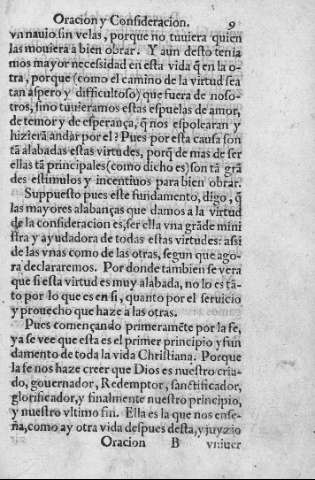 Oracion y Consideracion. 9
vn nauio sin velas, porque no tuuiera quien
las mouiera a bien obrar. Y aun desto tenia
mos mayor necessidad en esta vida q̃ en la o-
tra, porque (como el camino de la virtud sea
tan aspero y difficultoso) que fuera de noso-
tros, sino tuuieramos estas espuelas de amor,
de temor y de esperança, q̃ nos espolearan y
hizierã andar por el? Pues por esta causa son
tã alabadas estas virtudes, porq̃ de mas de ser
ellas tã principales (como dicho es) son tã grã
des estimulos y incentiuos para bien obrar.
Suppuesto pues este fundamento, digo, q̃
las mayores alabanças que damos a la virtud
de la consideracion es, ser ella vna grãde mini
stra y ayudadora de todas estas virtudes: assi
de las vnas como de las otras, segun que ago-
ra declararemos. Por donde tambien se vera
que si esta virtud es muy alabada, no lo es tã-
to por lo que es en si, quanto por el seruicio
y prouecho que haze a las otras.
Pues començando primeramẽte por la fe,
ya se vee que esta es el primer principio y fun
damento de toda la vida Christiana. Porque
la fe nos haze creer que Dios es nuestro cria-
do, gouernador, Redemptor, sanctificador,
glorificador, y finalmente nuestro principio,
y nuestro vltimo fin. Ella es la que nos ense-
ña, como ay otra vida despues desta, y juyzio
Oracion B vniuer